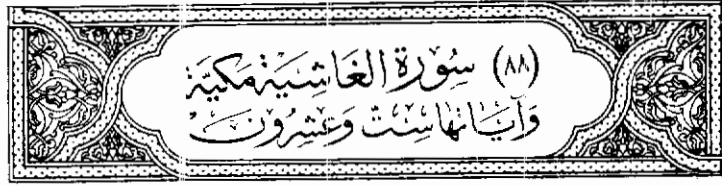 (٨٨) سُورَة الغَاشِيَة مَكيَّة
وَآيَانهَا سِتٌّ وَعِشْرُونَ